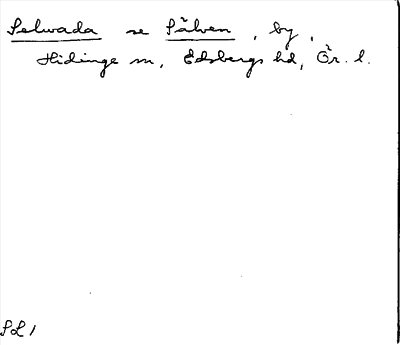 Selwada se Sälven, by,
Hidinge sn, Edsbergs hd, Ör. l.
SL 1